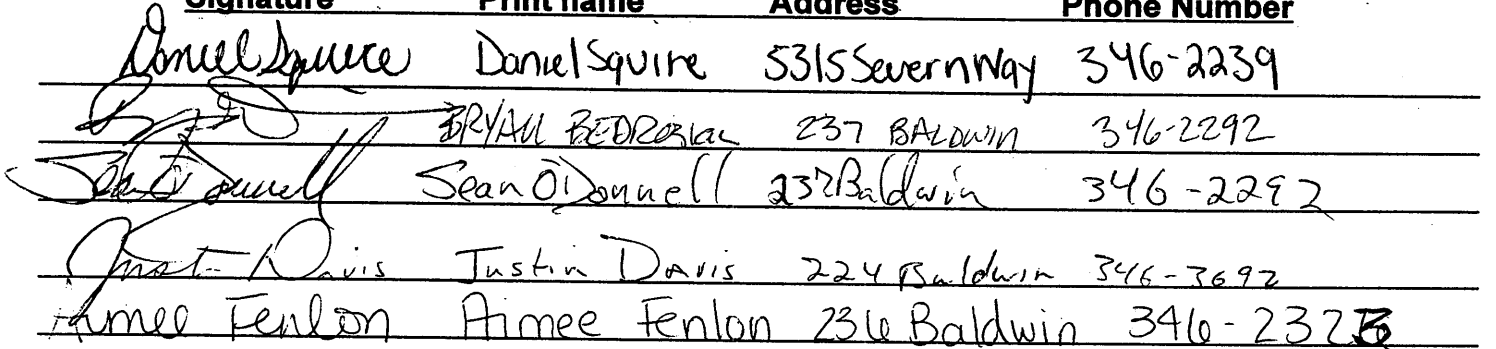 Signature Print name Address Phone Number
Daniel Squire Daniel Squire 5315 Severn Way 346-2239
BRYAN 237 BALDWIN 346-2292
Sean O'Donnell Sean O'Donnell 237 Baldwin 346-2292
Justin Davis Justin Davis 224 Baldwin 346-3692
Aimee Fenlon Aimee Fenlon 236 Baldwin